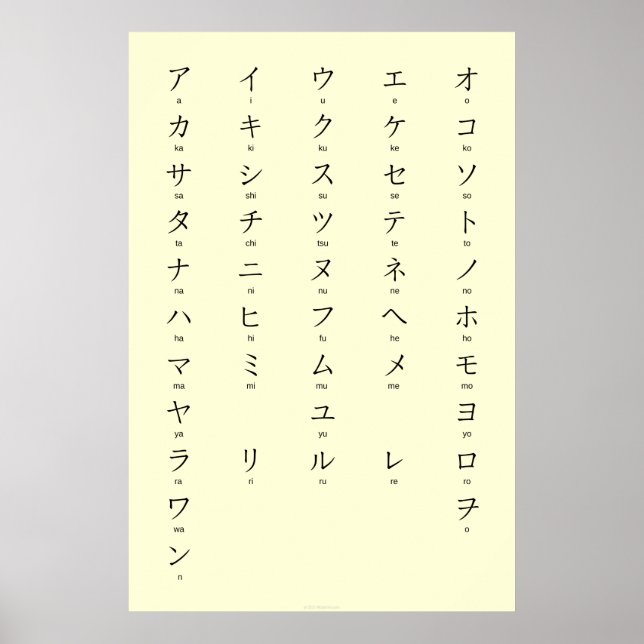 ア イ ウ エ オ
a i u e o
カ キ ク ケ コ
ka ki ku ke ko
サ シ ス セ ソ
sa shi su se so
タ チ ツ テ ト
ta chi tsu te to
ナ ニ ヌ ネ ノ
na ni nu ne no
ハ ヒ フ ヘ ホ
ha hi fu he ho
マ ミ ム メ モ
ma mi mu me mo
ヤ ユ ヨ
ya yu yo
ラ リ ル レ ロ
ra ri ru re ro
ワ ヲ
wa o
ン
n